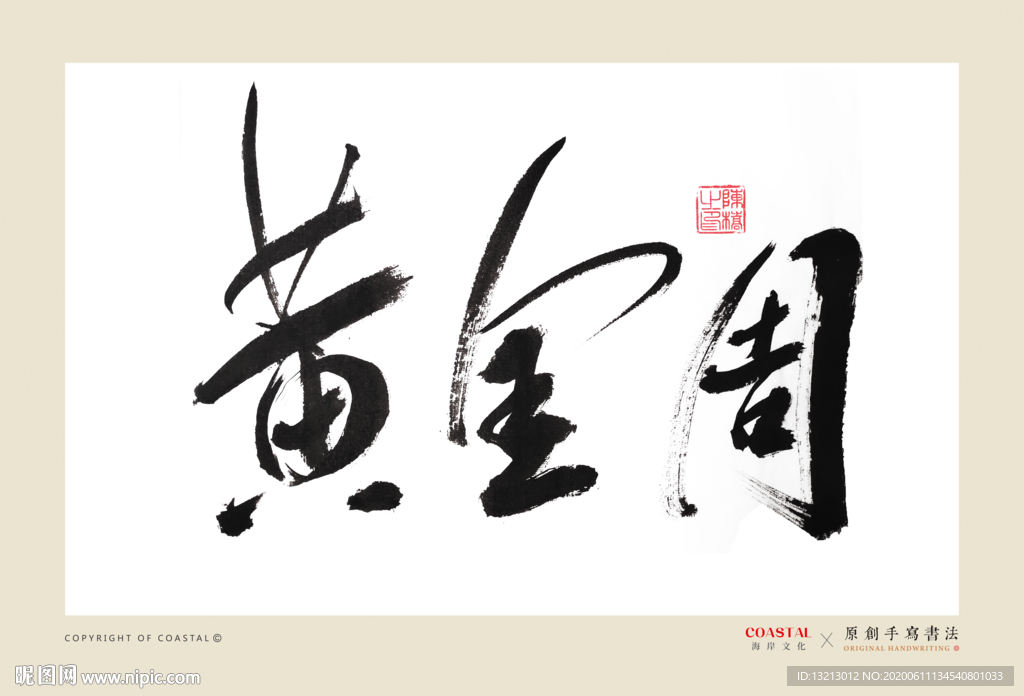 黄金周
陳橋之印
COPYRIGHT OF COASTAL©
COASTAL
海岸文化
×
原創手寫書法
ORIGINAL HANDWRITING
昵图网 www.nipic.com
ID:13213012 NO:20200611134540801033